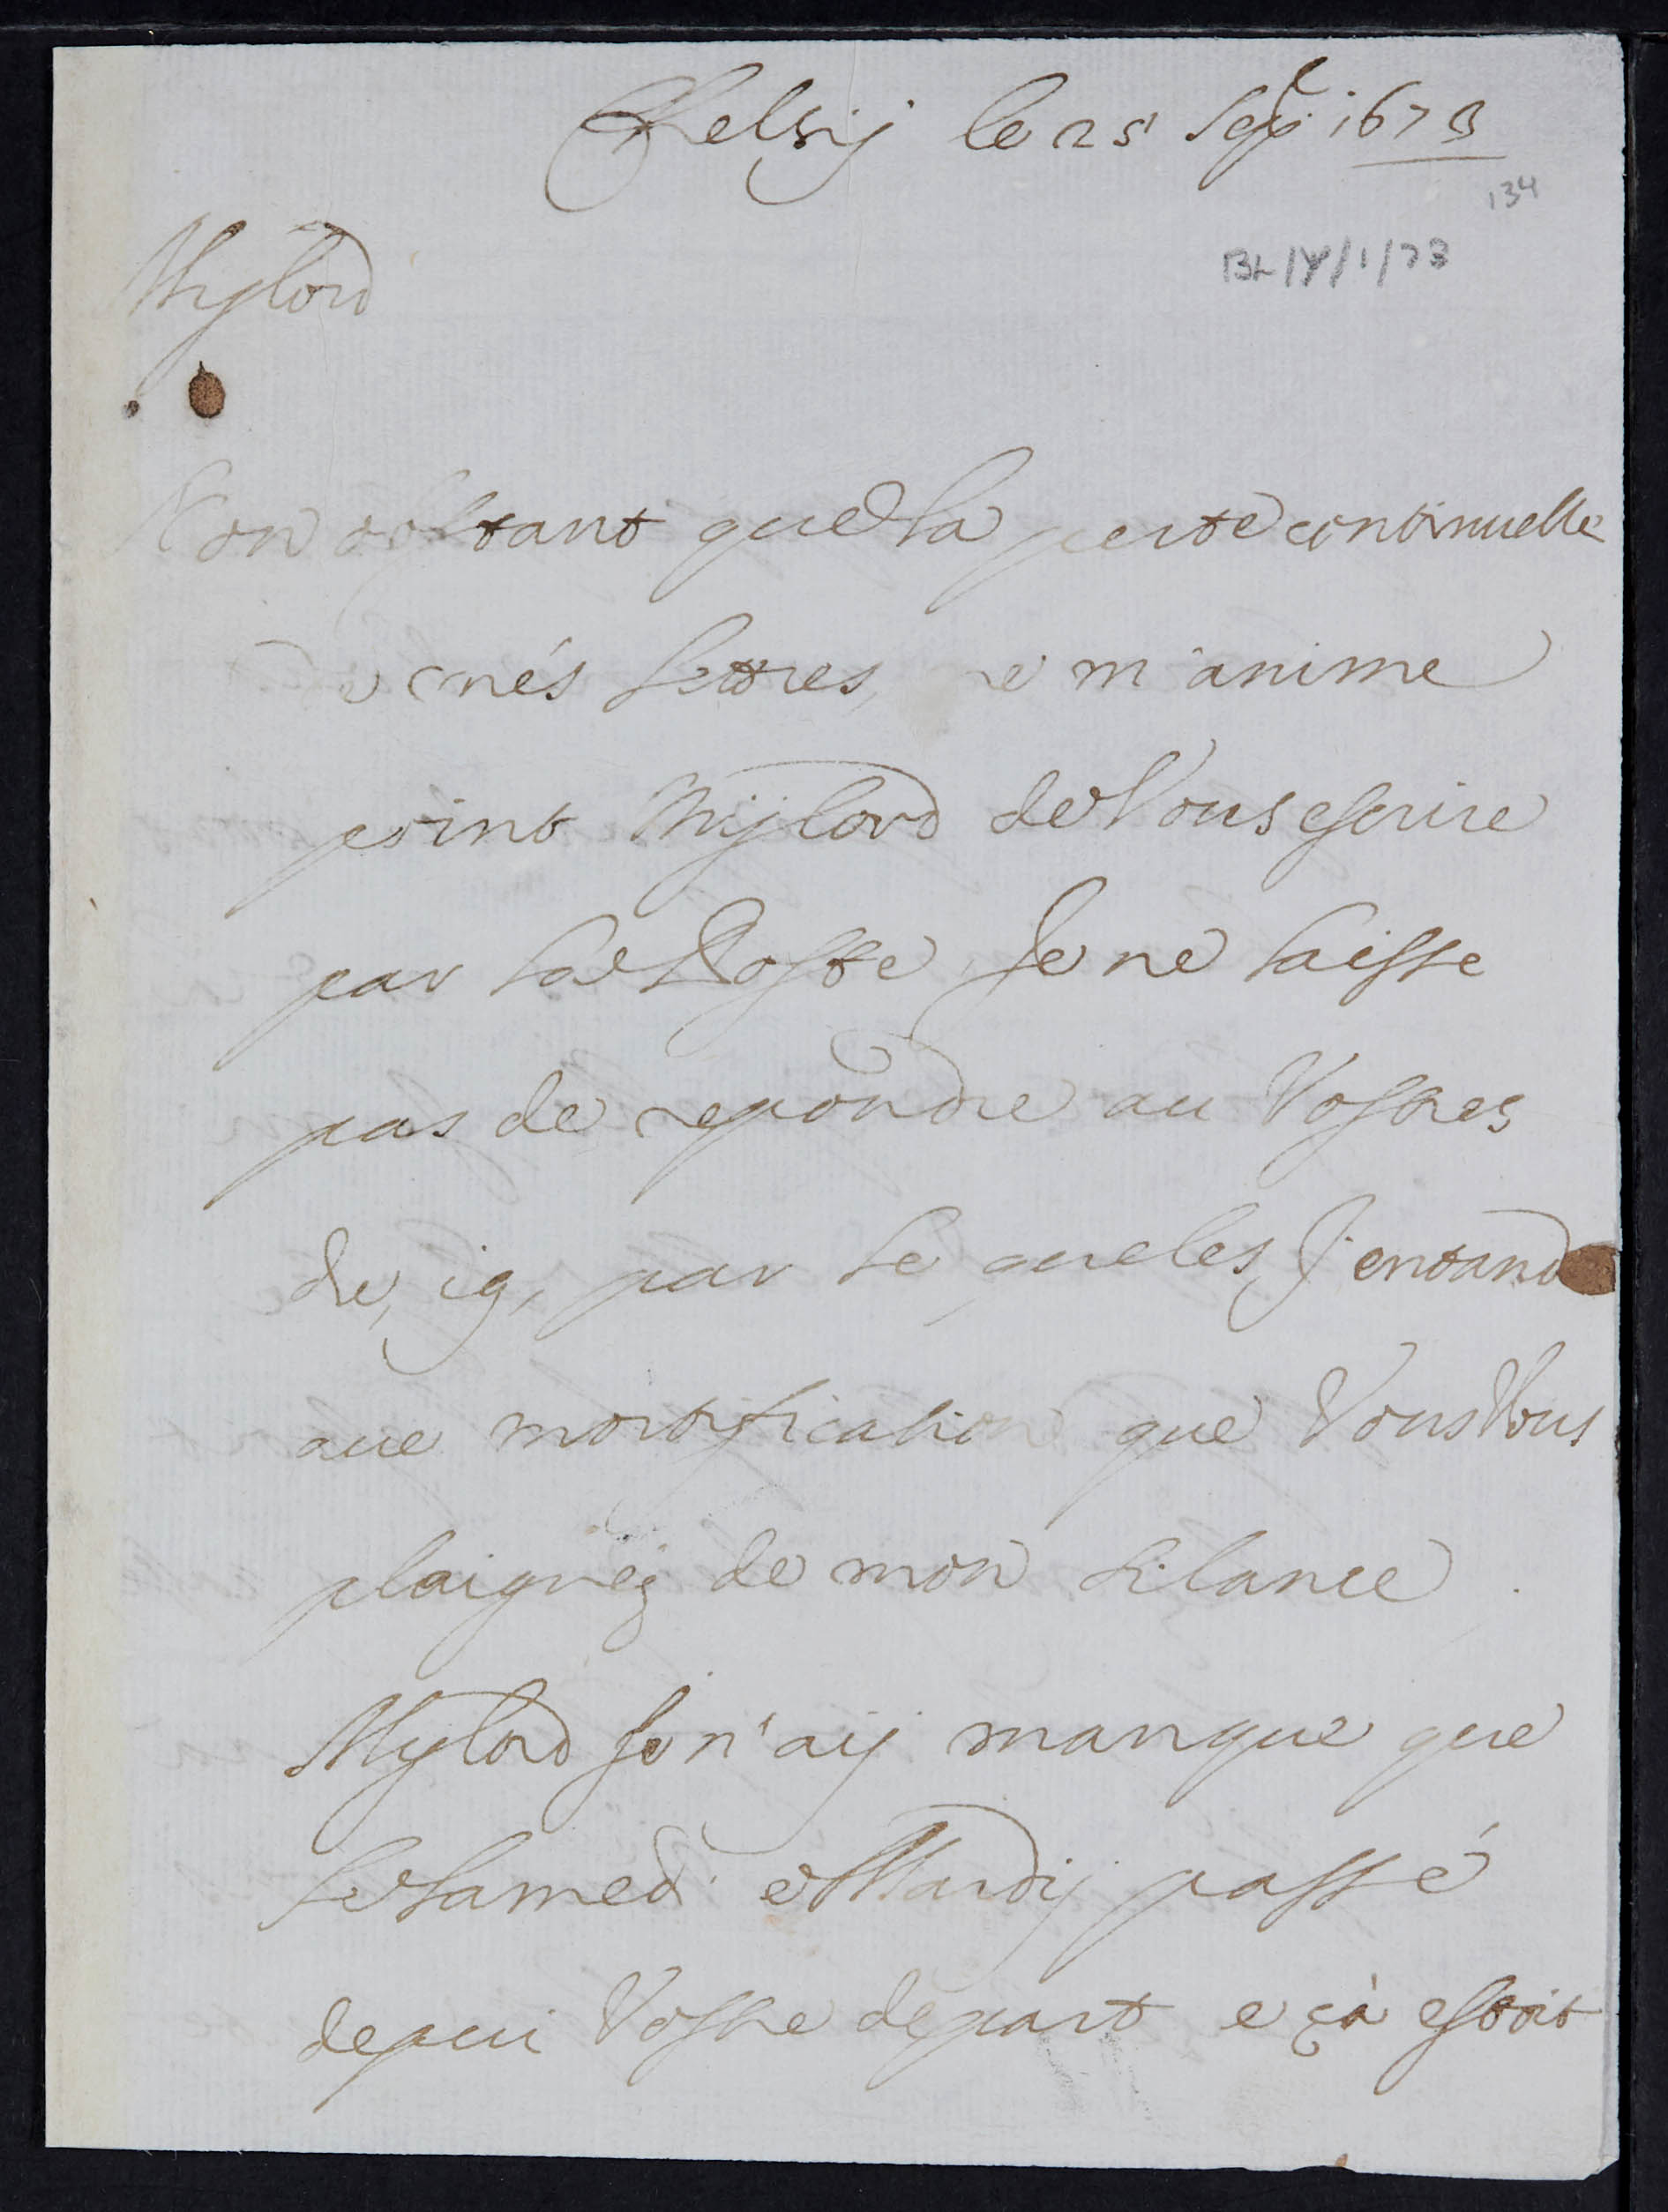 Chelsij le 25 Sep: 1673
134
BL/Y/1/73
Mylord
Non obstant que la perte continuelle
de més lettres, ne m'anime
point Mijlord de Vous escrire
par la Poste, Je ne laisse
pas de repondre au Vostres
de, 19, par le queles, J'entand
aue mortification que Vous Vous
plaignéz de mon silance
Mylord Je n'aij manque que
le Samedi e Mardij passé
depui Vostre depart e ça estoit